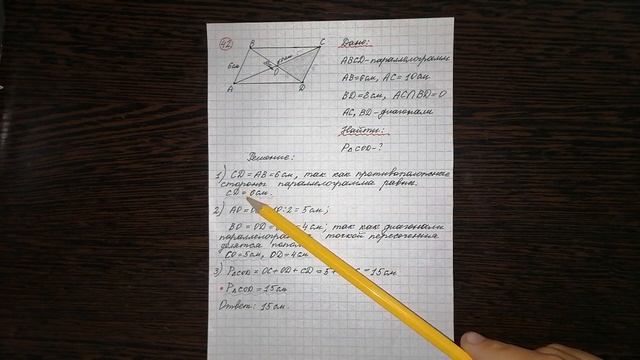 42
B
C
Дано:
6см
10см
ABCD-параллелограмм
O
AB=6см, AC=10см
A
D
BD=8см, AC∩BD=O
AC, BD-диагонали
Найти:
P△COD-?
Решение:
1) CD=AB=6см, так как противоположные
стороны параллелограмма равны.
CD=6см.
2) AO= :2=5см;
BO=OD= =4см; так как диагонали
точкой пересечения
делятся
CO=5см, OD=4см
3) P△COD=OC+OD+CD=5+ =15см
P△COD=15см
Ответ: 15см.